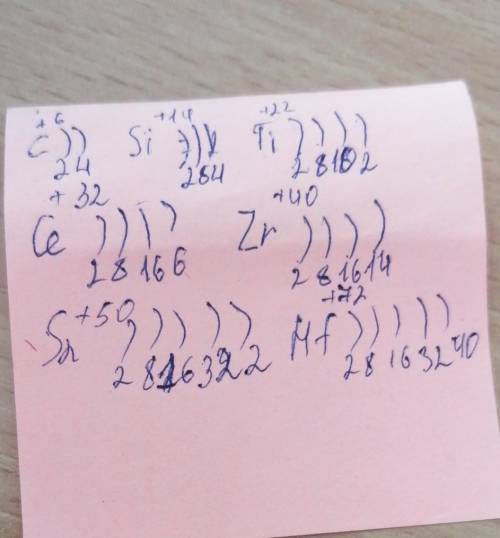 +6 +14 +22
C )) Si ))) Ti ))))
2 4 2 8 4 2 8 10 2
+32 +40
Ge )))) Zr ))))
2 8 16 6 2 8 16 14
+50 +72
Sn ))))) Hf )))))
2 8 16 32 2 2 8 16 32 40